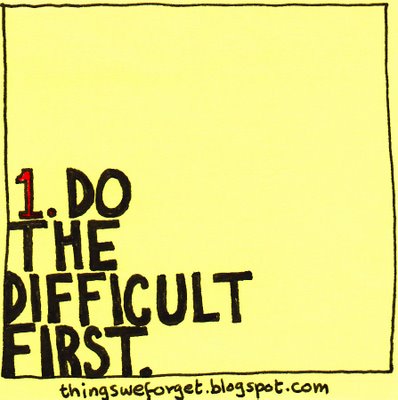 1. DO
THE
DIFFICULT
FIRST.
thingsweforget.blogspot.com